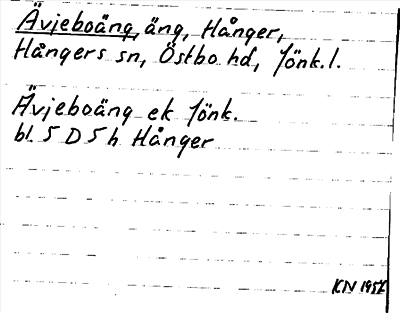 Ävjeboäng, äng, Hånger,
Hångers sn, Östbo hd, Jönk. l.
Ävjeboäng ek Jönk.
bl. 5 D 5 h Hånger
KN 1957